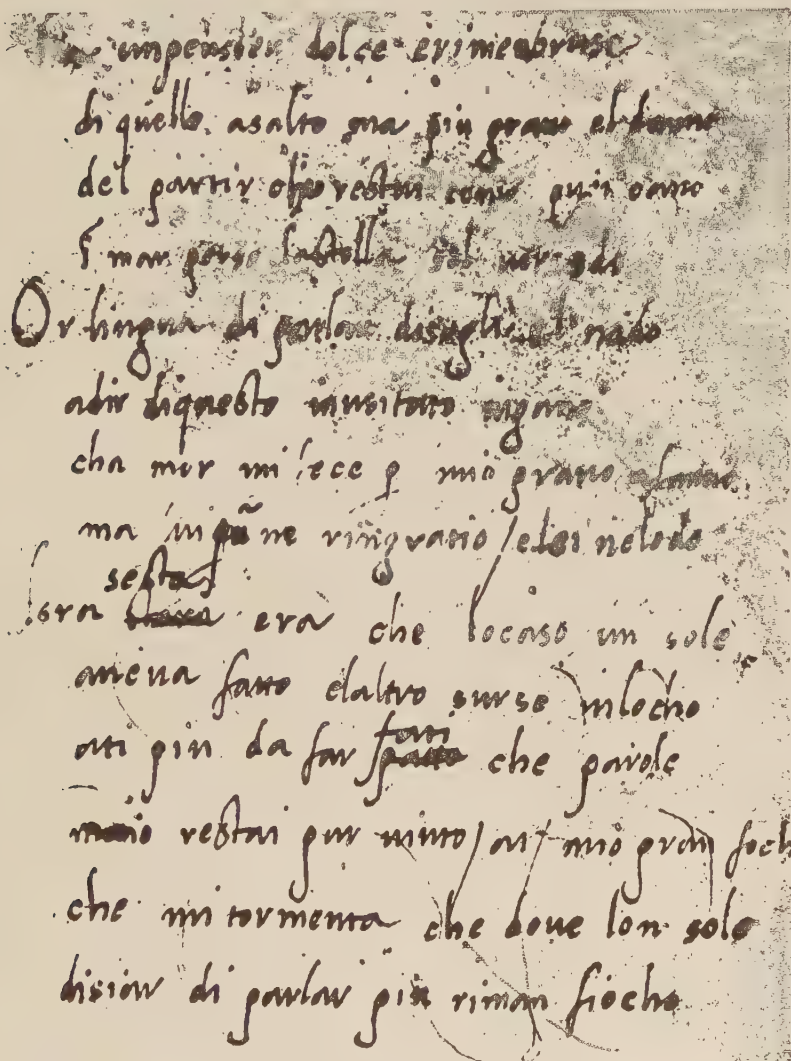 un pensier dolce e rimenbrarse
di quello asalto ma piu grave el danno
del partir restai como quei canno
mar perso la stella
Or lingua di parlar disoglie el nodo
adir diquesto inusitato ingano
cha mor mi fece p mio grave afanno
ma lui pur ne ringratio e lei nelodo
sesta
lora era che locaso un sole
aveva fatto elaltro surse inlocho
ati piu da far fati che parole
restai pur vinto al mio gran foch
che mi tormenta che dove lon sole
disiar di parlar piu riman fiocho